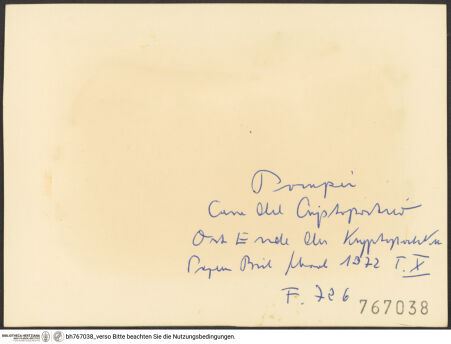 Pompei
Casa del Criptoportico
Ost Ende der Kryptoportikus
Papers Brit 1972 T. X
F. 726
767038
BIBLIOTHECA HERTZIANA
bh767038_verso Bitte beachten Sie die Nutzungsbedingungen.